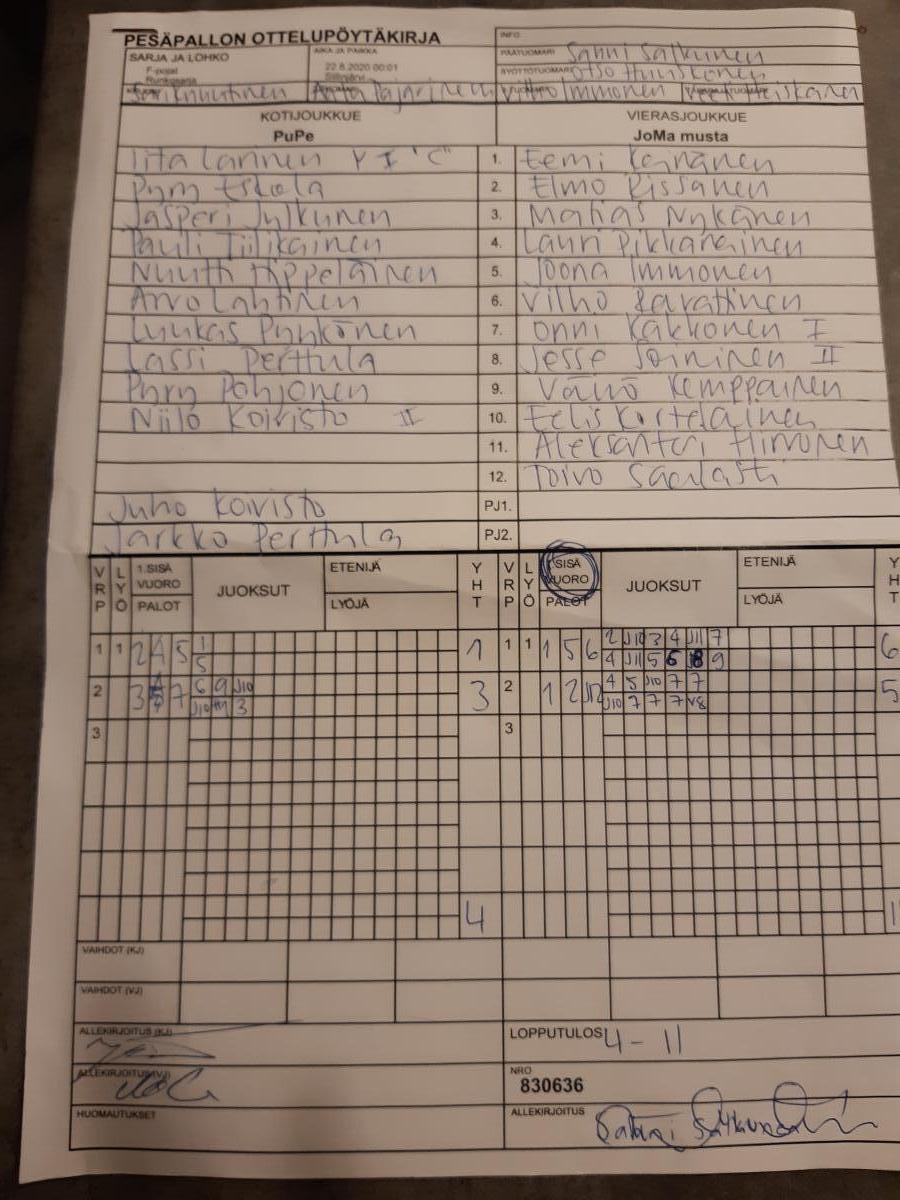 PESÄPALLON OTTELUPÖYTÄKIRJA
INFO
SARJA JA LOHKO
F-pojat
Runkosarja
AIKA JA PAIKKA
22.8.2020 00:01
Siilinjärvi
PÄÄTUOMARI Sanni Satkunen
SYÖTTÖTUOMARI
Pajarinen
Vilho Immonen
KOTIJOUKKUE
PuPe
VIERASJOUKKUE
JoMa musta
Iita Larinen Y I "C" 1. Eemi Keinänen
Pyry Eskola 2. Elmo Rissanen
Jasperi Jylkunen 3. Matias Nykänen
Pauli Tiilikainen 4. Lauri Pikkarainen
Nuutti Hippeläinen 5. Joona Immonen
Arvo Lahtinen 6. Vilho
Luukas Pynnönen 7. Onni Kakkonen I
Lassi Perttula 8. Jesse Sorninen II
Pyry Pohjonen 9. Väinö Kemppainen
Niilo Koivisto II 10. Eelis Kortelainen
11. Aleksanteri Hirvonen
12. Toivo
Juho Koivisto PJ1.
Jarkko Perttula PJ2.
VRP LYÖ 1.SISÄ VUORO PALOT JUOKSUT ETENIJÄ LYÖJÄ YHT VRP LYÖ 1.SISÄ VUORO PALOT JUOKSUT ETENIJÄ LYÖJÄ YHT
1 1 2 4 5 1 1 1 1 1 5 6 2 J10 3 4 J11 7 6
5 4 J11 5 6 8 9
2 3 7 6 9 J10 3 2 1 2 J12 4 5 J10 7 7 5
J10 3 J10 7 7 7 V8
3 3
4
VAIHDOT (KJ)
VAIHDOT (VJ)
ALLEKIRJOITUS (KJ)
LOPPUTULOS 4 - 11
ALLEKIRJOITUS (VJ)
NRO
830636
HUOMAUTUKSET
ALLEKIRJOITUS